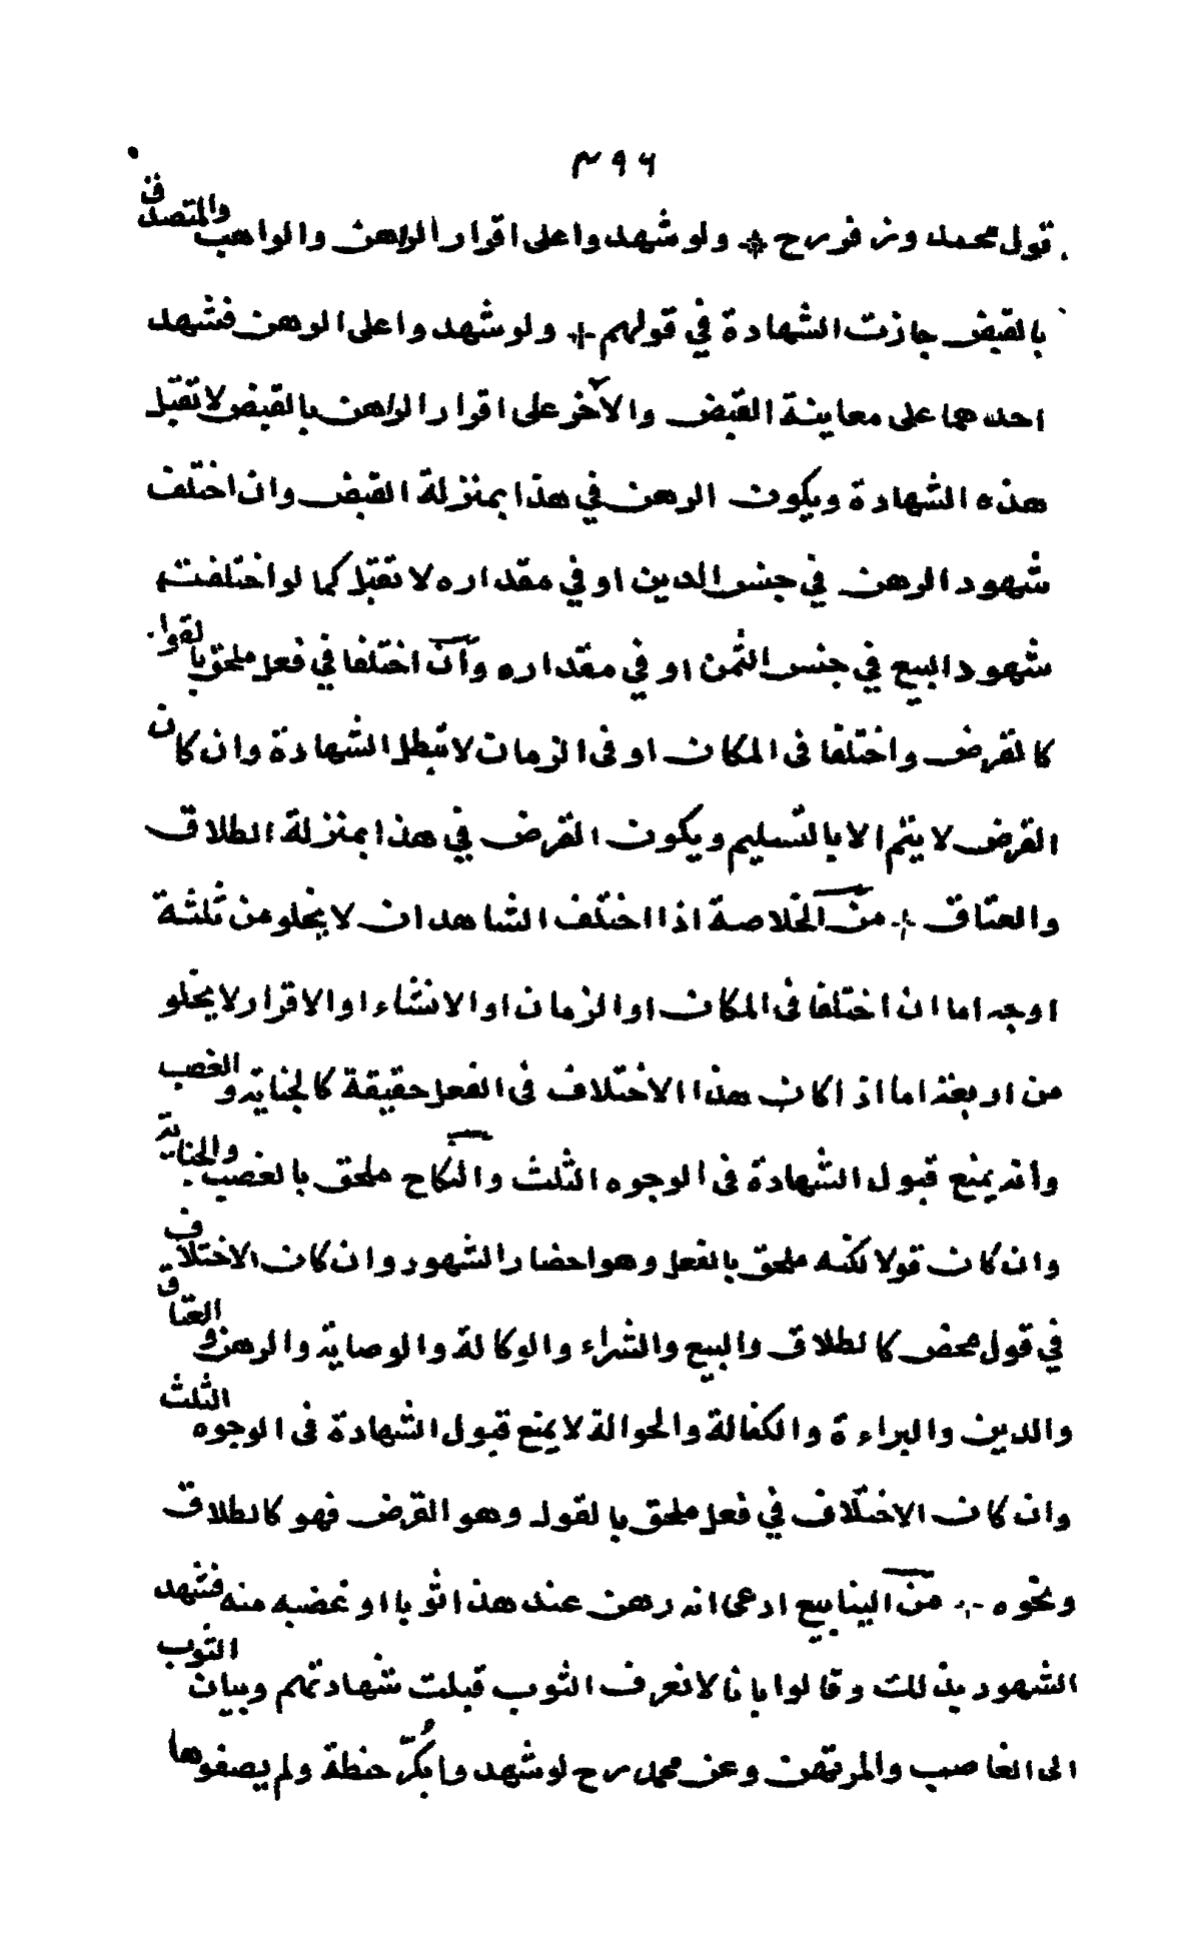 ٣٩٦
قول محمد وزفر رح ولو شهدوا على اقرار الراهن والواهب والمتصدق
بالقبض جازت الشهادة في قولهم ولو شهدوا على الرهن فشهد
احدهما على معاينة القبض والآخر على اقرار الراهن بالقبض لا تقبل
هذه الشهادة ويكون الرهن في هذا بمنزلة القبض وان اختلف
شهود الرهن في جنس الدين او في مقداره لا تقبل كما لو اختلفت
شهود البيع في جنس الثمن او في مقداره وان اختلفا في فعل ملحق بالقول
كالقرض واختلفا فى المكان او فى الزمان لا تبطل الشهادة وان كان
القرض لا يتم الا بالتسليم ويكون القرض في هذا بمنزلة الطلاق
والعتاق من الخلاصة اذا اختلف الشاهدان لا يخلو من ثلثة
اوجه اما ان اختلفا فى المكان او الزمان او الانشاء او الاقرار لا يخلو
من اربعة اما اذا كان هذا الاختلاف فى الفعل حقيقة كالجناية والغصب
وانه يمنع قبول الشهادة فى الوجوه الثلث والنكاح ملحق بالغصب والجناية
وان كان قولا لكنه ملحق بالفعل وهو احضار الشهود وان كان الاختلاف
في قول محض كالطلاق والبيع والشراء والوكالة والوصاية والرهن والعتاق
والدين والبراءة والكفالة والحوالة لا يمنع قبول الشهادة فى الوجوه الثلث
وان كان الاختلاف في فعل ملحق بالقول وهو القرض فهو كالطلاق
ونحوه من الينابيع ادعى انه رهن عند هذا ثوبا او غصبه منه فشهد
الشهود بذلك وقالوا بانا لا نعرف الثوب قبلت شهادتهم وبيان الثوب
الى الغاصب والمرتهن وعن محمد رح لو شهدوا بكر حنطة ولم يصفوها